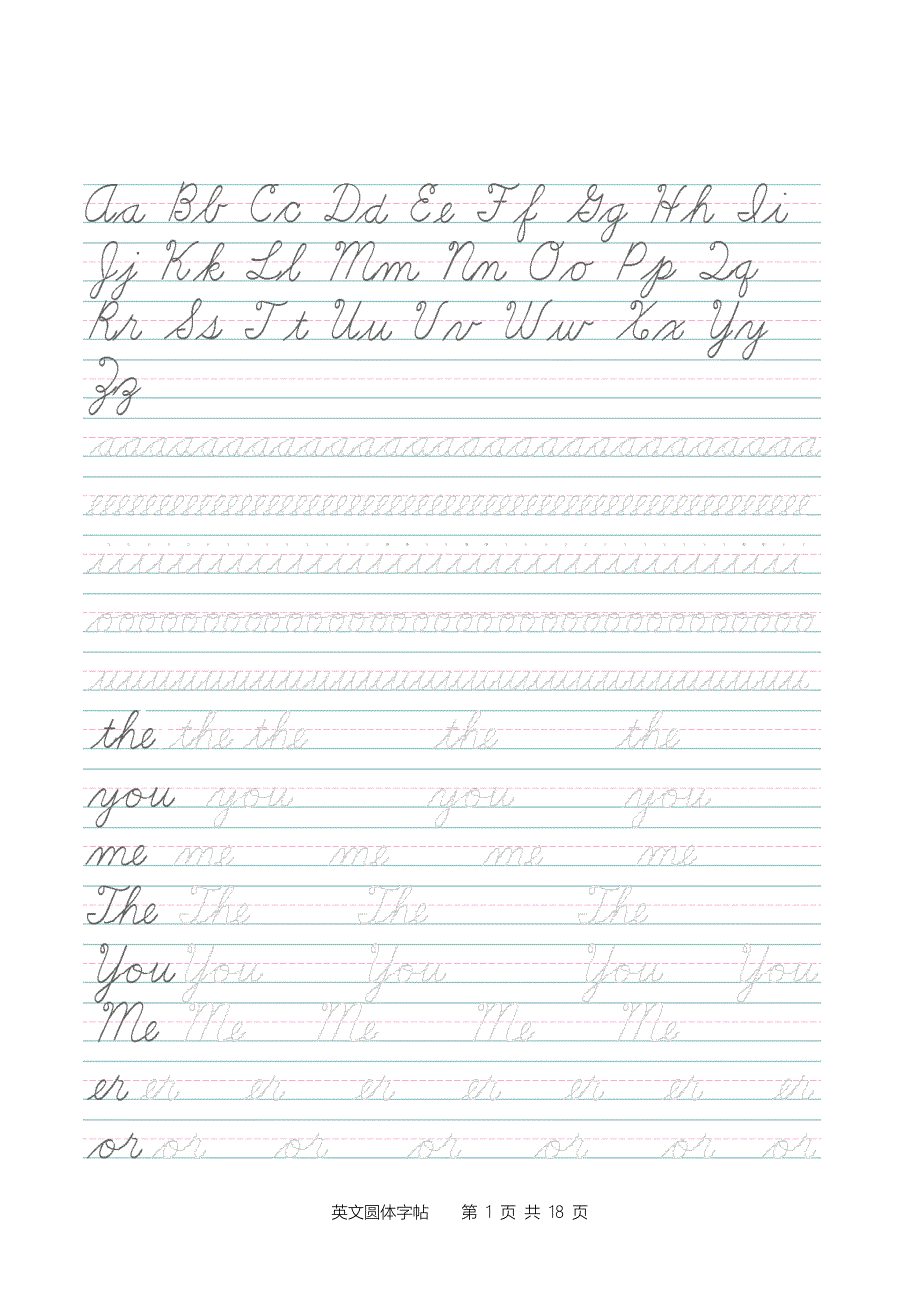 Aa Bb Cc Dd Ee Ff Gg Hh Ii
Jj Kk Ll Mm Nn Oo Pp Qq
Rr Ss Tt Uu Vv Ww Xx Yy
Zz
aaaaaaaaaaaaaaaaaaaaaaaaaaaaaaaaaaaaa
eeeeeeeeeeeeeeeeeeeeeeeeeeeeeeeeeeeeeeeeeeeeeeeeeeeeee
iiiiiiiiiiiiiiiiiiiiiiiiiiiiiiiiiiiiiiiiiiiiiiiiiiiii
ooooooooooooooooooooooooooooooooooooooooo
uuuuuuuuuuuuuuuuuuuuuuuuuuuuuuuuuuuu
the the the the the
you you you you
me me me me me
The The The The
You You You You You
Me Me Me Me Me
er er er er er er er er
or or or or or or or
英文圆体字帖 第 1 页 共 18 页